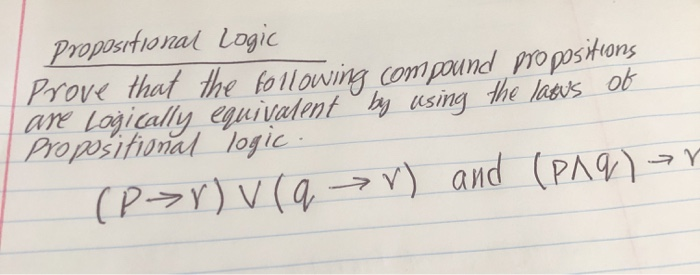 Propositional Logic
Prove that the following compound propositions
are Logically equivalent by using the laws of
Propositional logic.
(P→r) V (q → r) and (P∧q) → r